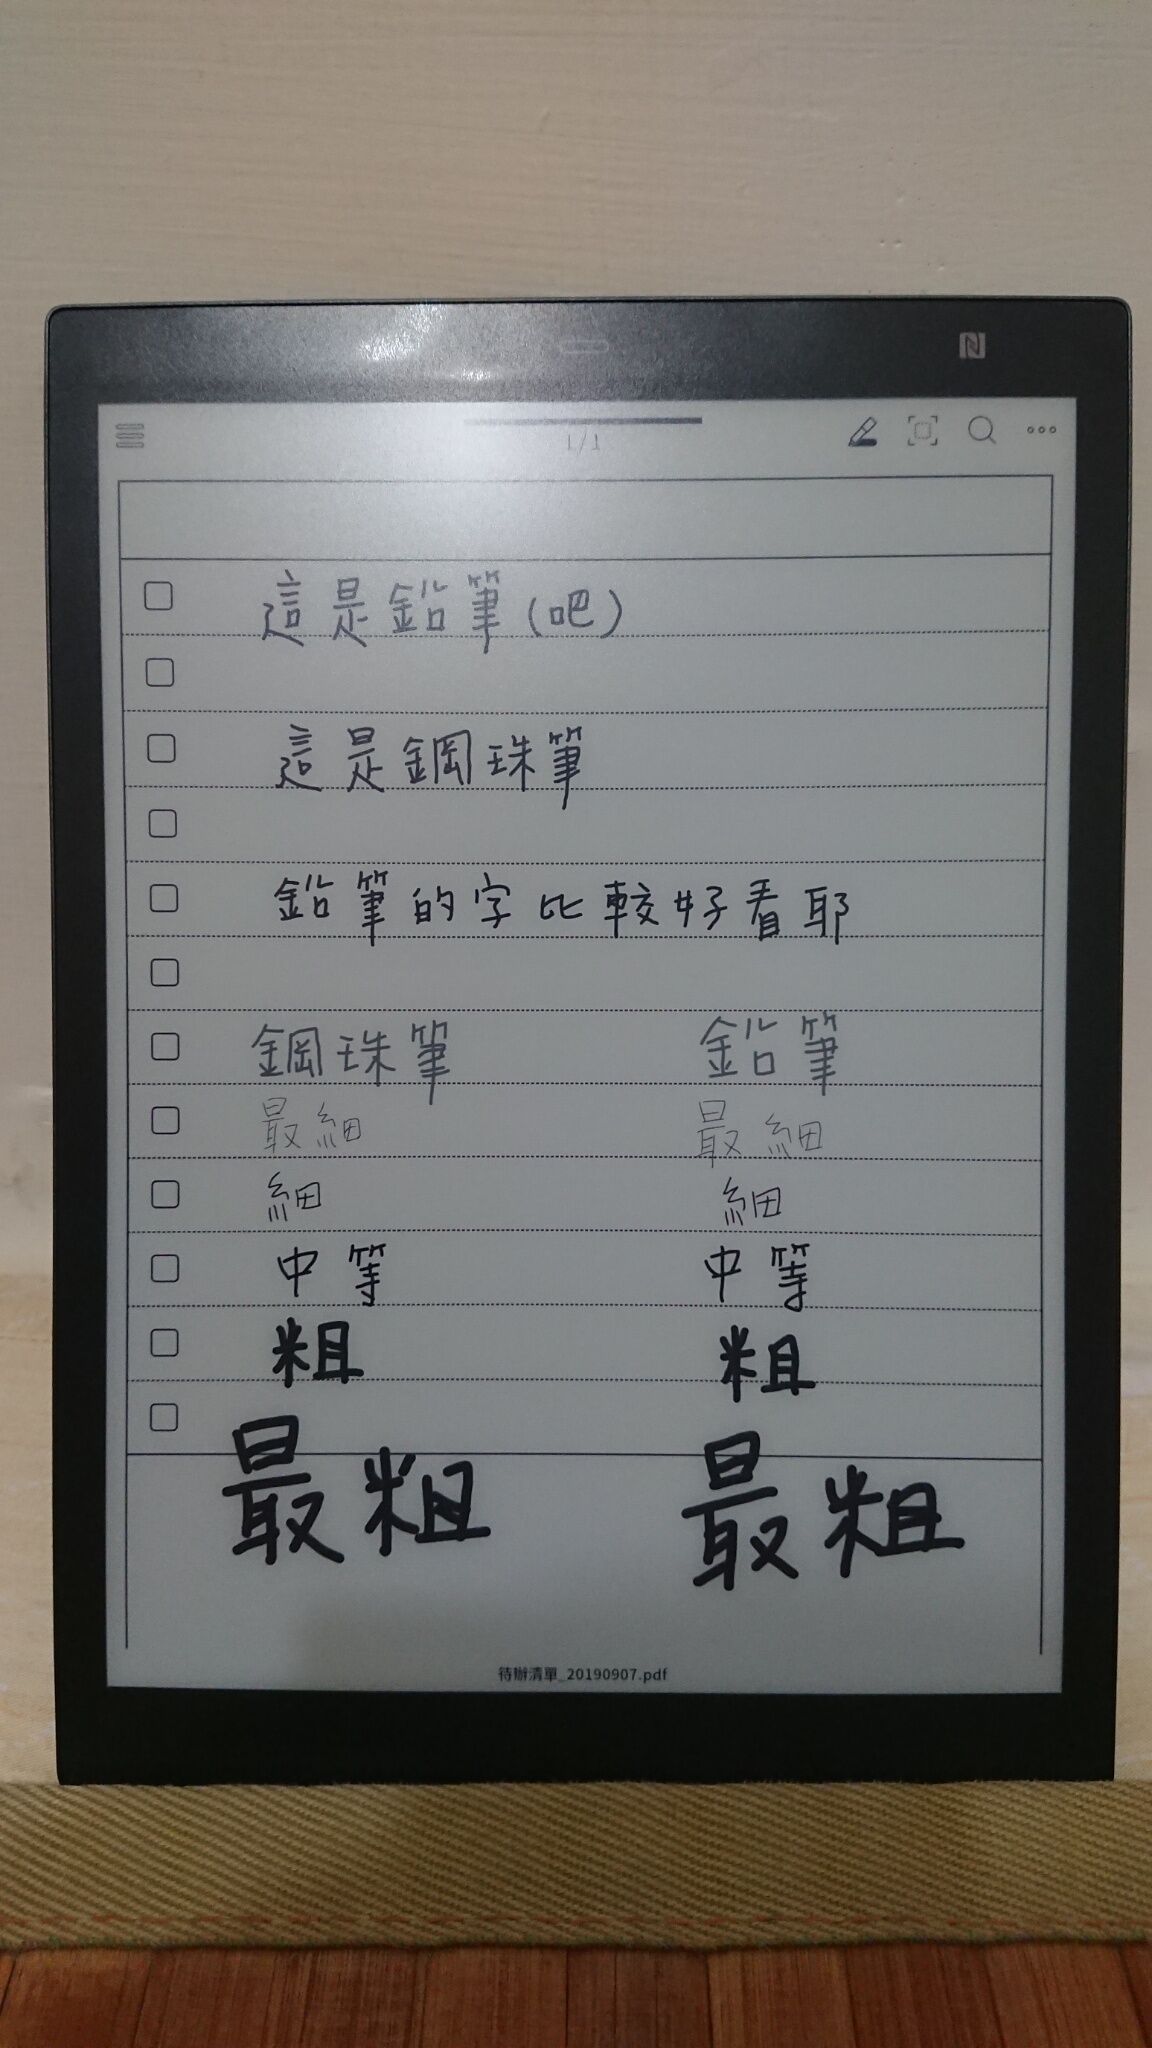 1/1
這是鉛筆(吧)
這是鋼珠筆
鉛筆的字比較好看耶
鋼珠筆 鉛筆
最細 最細
細 細
中等 中等
粗 粗
最粗 最粗
待辦清單_20190907.pdf